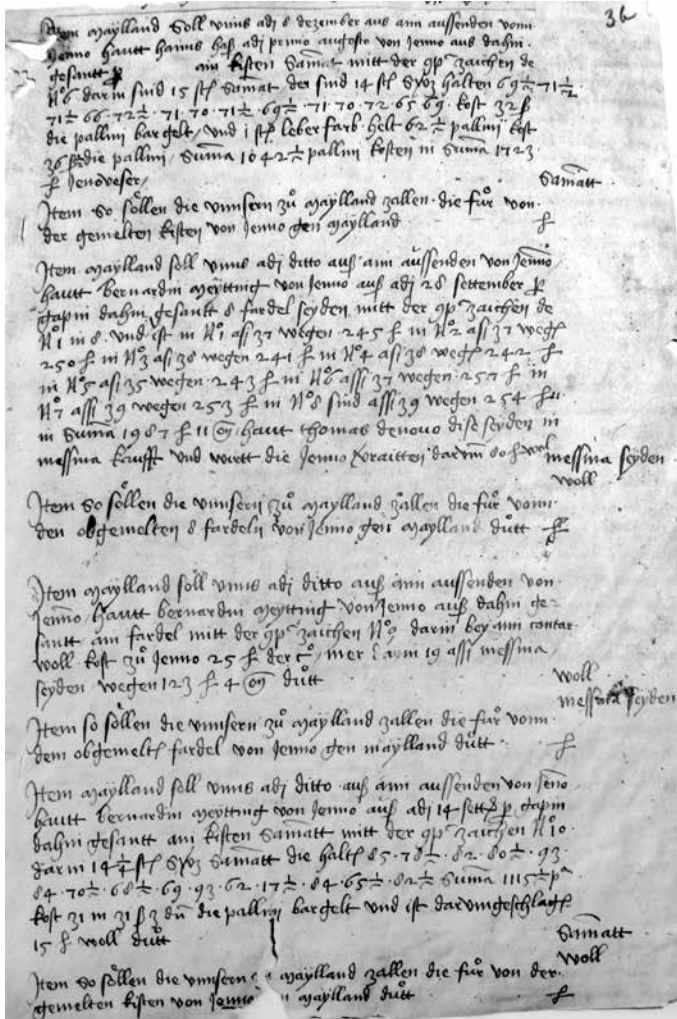 36
Item Maylland soll unns adj 8 dezember aus ann aussenden vonn
Jenno hautt hanns haß adj primo augosto von Jenno aus dahin
gesantt ain kisten Samat mitt der zaichen de
N° 6 darin sind 15 stf Samat der sind 14 stf halten 69½ 71½
71½ 66 · 72½ · 71 · 70 · 71½ · 69½ · 71 · 70 · 72 65 69 kost 32 ß
die pallmi bar gelt / und 1 stf leberfarb helt 62½ pallmi kost
36 ß die pallmi / Suma 1042½ pallmi kosten in Suma 1723
Jenoveser /
Samatt
Item so söllen die unnsern zů Maylland zallen die fůr von
der gemelten kisten von Jenno gen Maylland
Item Maylland soll unns adj ditto auß ann aussenden von Jenno
hautt bernardin Meytting von Jenno auß adj 28 settember
gapin dahin gesantt 8 fardel seyden mitt der zaichen de
N° 1 in 8 und ist in N° 1 asi 37 wegen 245 in N° 2 asi 37 wegen
250 in N° 3 asi 38 wegen 241 in N° 4 asi 38 wegen 242
in N° 5 asi 35 wegen 243 in N° 6 assi 37 wegen 257 in
N° 7 assi 39 wegen 253 in N° 8 sind assi 39 wegen 254
in Suma 1987 11 hautt thomas denovo dise seyden in
messina kaufft und wirtt die Jenno darum 80 wol
messina seyden
woll
Item so söllen die unnsern zů Maylland zallen die fůr vonn
den obgemelten 8 fardeln von Jenno gen Maylland důtt
Item Maylland soll unns adj ditto auß ann aussenden von
Jenno hautt bernardin Meytting von Jenno auß dahin ge-
santt ain fardel mitt der zaichen N° 9 darin bey ain contar
woll kost zů Jenno 25 der / mer darin 19 assi messina
seyden wegen 123 4 důtt
woll
messina seyden
Item so söllen die unnsern zů Maylland zallen die fůr vonn
dem obgemelten fardel von Jenno gen maylland důtt
Item Maylland soll unns adj ditto auß ann aussenden von Jenno
hautt bernardin Meytting von Jenno auß adj 14 gapin
dahin gesantt ain kisten Samatt mitt der zaichen N° 10
darin 14¼ stf Samatt die halten 85 · 78½ · 82 · 80½ · 93
84 · 70½ · 68½ · 69 · 93 · 62 · 17½ · 84 · 65½ · 82½ Suma 1115½
kost 31 in 31 ß 3 die pallmi bar gelt und ist darum geschlagen
15 woll důtt
Samatt
woll
Item so söllen die unnsern Maylland zallen die fůr von der
gemelten kisten von Jenno Maylland důtt